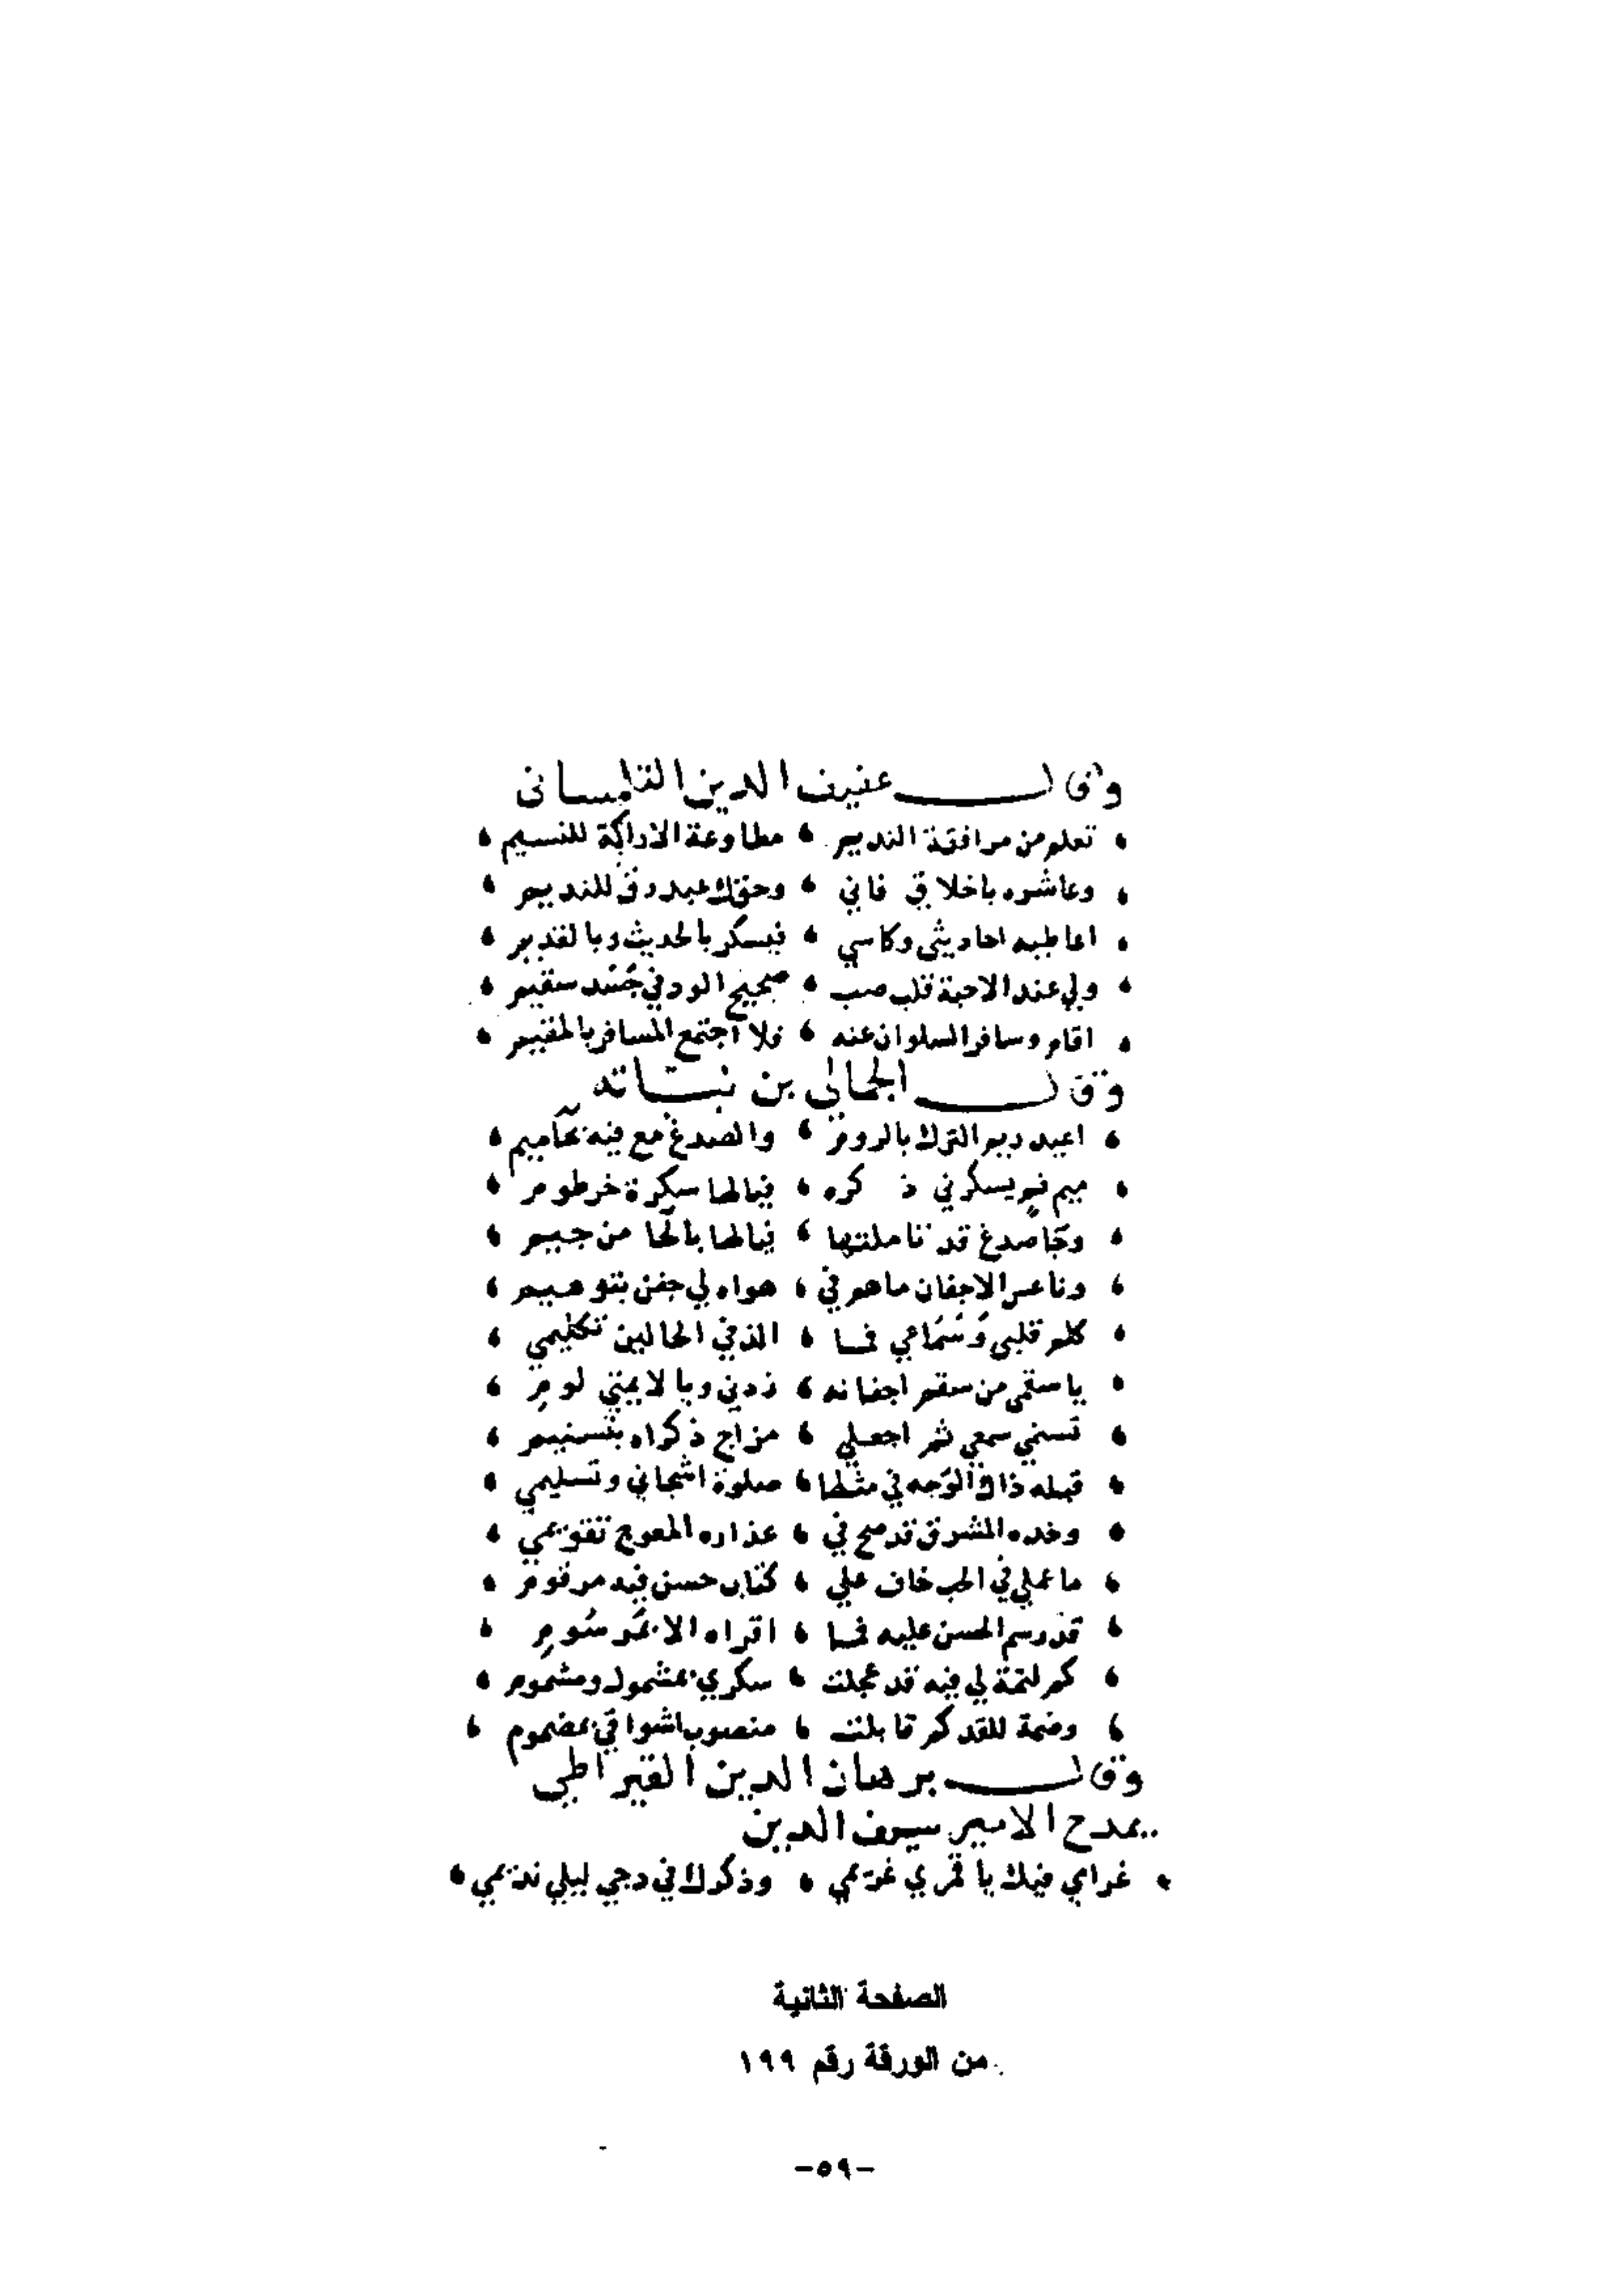 وقال عفيف الدين التلمسانى
تعلم من مرافقة النديم ، مطاوعة الاراكة للنسيم ،
وعاشره باخلاقي فاني ، وحقك عبد رق للنديم ،
اعاطيه احاديثى وكاسي ، فيسكر بالحديث وبالقديم ،
ولي عند الاحبة قلب صب ، صحيح الود في جسد سقيم ،
اقام وسافر السلوان عنه ، فلا اجتمع المسافر بالمقيم ،
وقال الجمالى بن نباتة
اعيد ريم الترك بالروم ، والصدغ مع فيه بحاميم ،
ميم فم يسكرني ذ كره ، فيالها سكرة خرطوم ،
وحا صدغ قد تاملتها ، فيالها يا لحا من جيم ،
وناعس الاجفان ما هم في ، هواه لي جفن بتهويم ،
كلم قلبى وسماعي فما ، الذ في الحالين تكليمي ،
يا سقمى من سقم اجفانه ، زدنى ويا لايمتي لوم ،
تسنمي سمعي ثم اجعلي ، مزاج ذكراه بتسنيم ،
قبله ذاك الوجه في مثلها ، صلوة اشجاني وتسليمي ،
وخده المشرق قد صح في ، عذاره المعوج تقويمي ،
ما عملي في الحب خاف علي ، كتاب حسن فيه مرقوم ،
قد رسم الحسن عليه فما ، اقراه الا بمرسوم ،
كم لثمة لي فيه قد عجلت ، سكري بمشمول ومشموم ،
وضمة للقد كم قابلت ، منصوب اشواقي بمضموم ،
وقال برهان الدين القيراطي
يمدح الامير سيف الدين
غرامي فيك يا قمري غريمي ، وذكرك في دجي ليلي نديمي ،
الصفحة الثانية
من الورقة رقم ١٩٩
-٥٩-